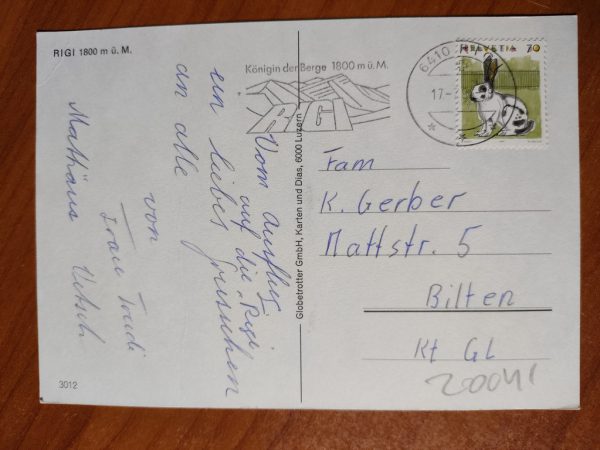 RIGI 1800 m ü. M.
Königin der Berge 1800 m ü. M.
RIGI
6410
17.-
HELVETIA 70
Vom Ausflug
auf die Rigi
ein liebes Grüschen
an alle
von
Frau Trudi
Mathäus
Globetrotter GmbH, Karten und Dias, 6000 Luzern
Fam
K. Gerber
Mattstr. 5
Bilten
Kt GL
3012